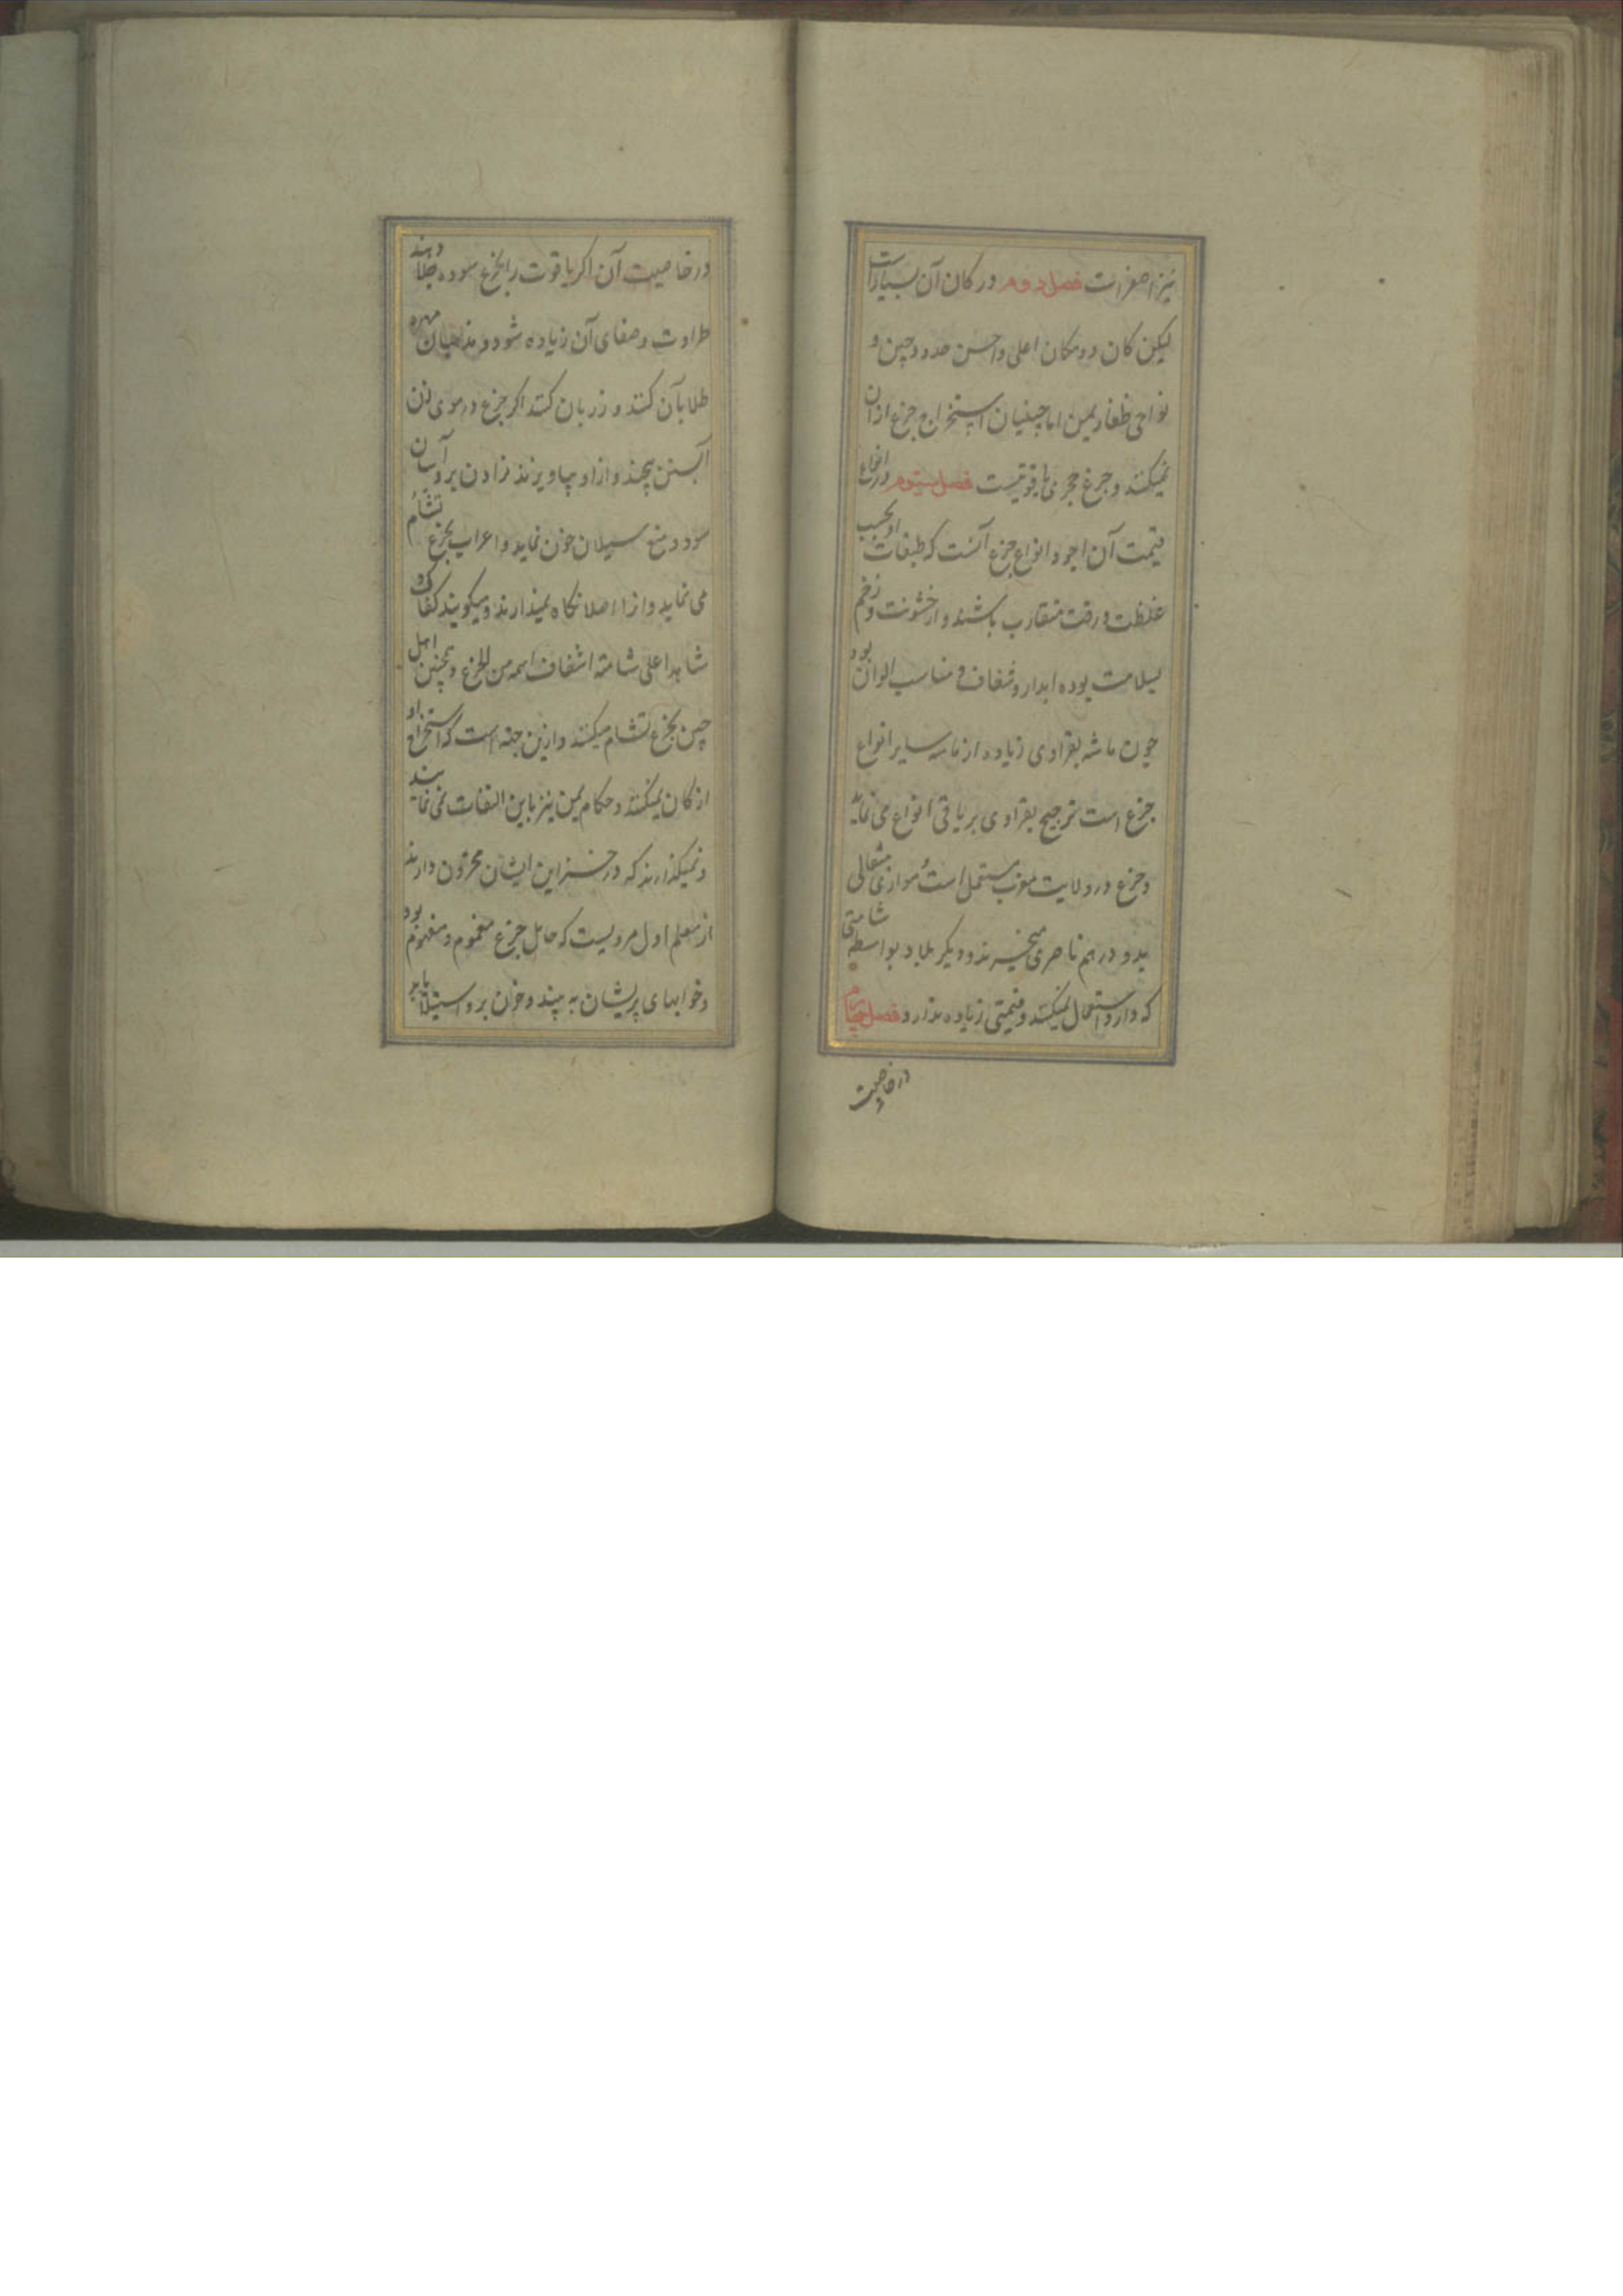 نیز اصغر است فصل دوم در کان آن بسیار است
لیکن کان دو مکان اعلی و احسن حدود چین و
نواحی ظفار یمن اما چینیان استخراج جزع از ان
نمیکنند و جزع حجری یاقوتیست فصل سیوم در انواع
قیمت آن اجود انواع جزع آنست که طبقات او بحسب
غلظت و رقت متقارب باشند و از خشونت و زخم
بسلامت بوده ابدار و شفاف و مناسب الوان بود
چون ماشه بقراوی زیاده از ماسه سایر انواع
جزع است ترجیح بقراوی بر باقی انواع می نماید
و جزع در ولایت مغرب مستعمل است موازی مثقالی
بدو درهم ناصری میخرند و دیگر بلاد بواسطه شامتی
که دارد استعمال نمیکنند و قیمتی زیاده ندارد فصل چهارم
در خاصیت
در خاصیت آن اکر یاقوت را بجزع سوده جلا دهند
طراوت و صفای آن زیاده شود و مذهبان مهره
طلا بآن کنند و زربان کنند اکر جزع در موی زن
آبستن پیچند و ازاو بیاویزند زادن برو آسان
شود و منع سیلان خون نماید و اعراب بجزع تشأم
می نماید و انرا اصلا نکاه نمیدارند و میکویند کفاک و
شاهدا علی شامته اشفاف اسمه من الجزع و همچنین اهل
چین بجزع تشام میکنند و ازین جهة است که استخراج او
از کان نمیکنند و حکام یمن نیز باین التفات نمی نمایند
و نمیکذارند که در خزاین ایشان مخزون دارند
از معلم اول مرویست که حامل جزع مغموم و مهموم بود
و خوابهای پریشان به بیند و حزن برو استیلا یابد